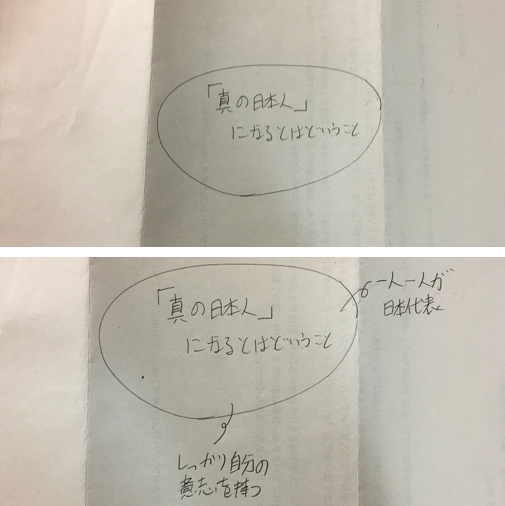 「真の日本人」
になるとはどういうこと
「真の日本人」
になるとはどういうこと
一人一人が
日本代表
しっかり自分の
意志を持つ